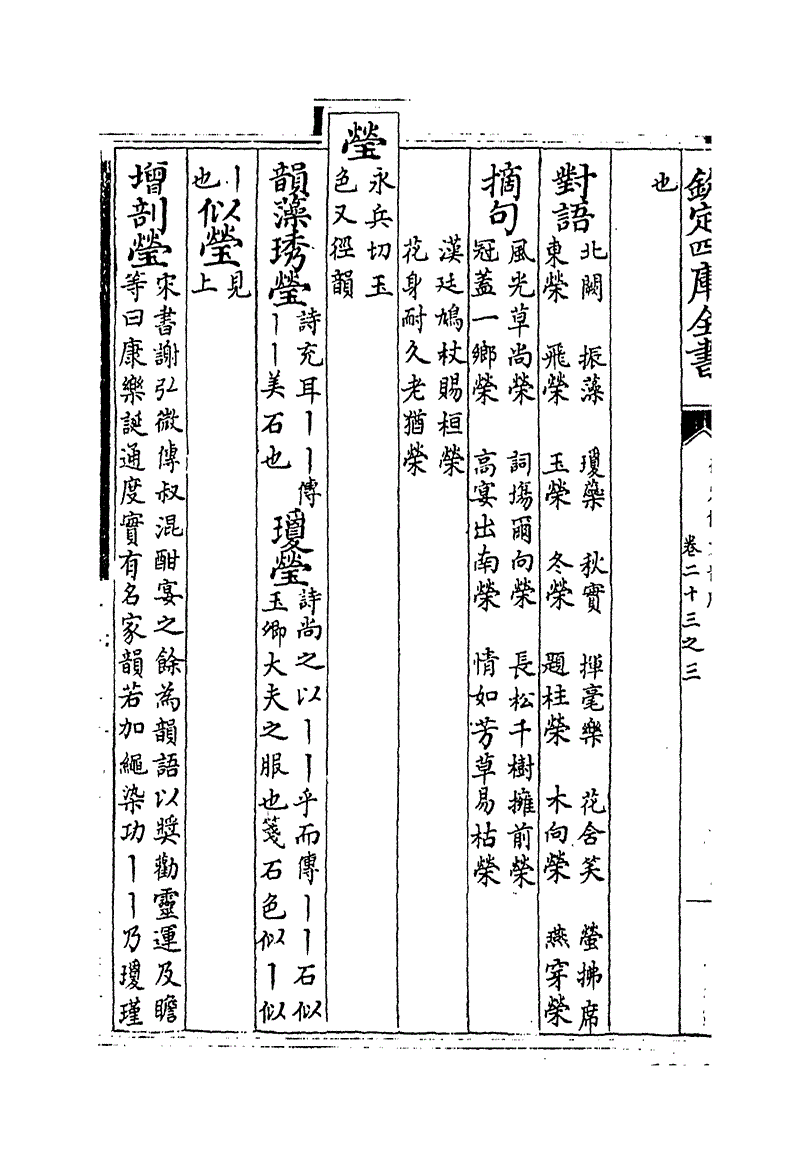 欽定四庫全書
卷二十三之三
也
對語北闕 東榮 振藻 飛榮 瓊蘂 玉榮 秋實 冬榮 揮毫樂 題柱榮 花含笑 木向榮 螢拂席 燕穿榮
摘句風光草尚榮 冠蓋一鄉榮 詞塲爾向榮 高宴出南榮 長松千樹擁前榮 情如芳草易枯榮
漢廷鳩杖賜桓榮 花身耐久老猶榮
瑩永兵切玉色又徑韻
韻藻琇瑩詩充耳丨丨傳丨丨美石也 瓊瑩詩尚之以丨丨乎而傳丨丨石似玉卿大夫之服也箋石色似丨似
丨也似瑩見上
增剖瑩宋書謝弘微傳叔混酣宴之餘為韻語以奬勸靈運及瞻等曰康樂誕通度實有名家韻若加繩染功丨丨乃瓊瑾